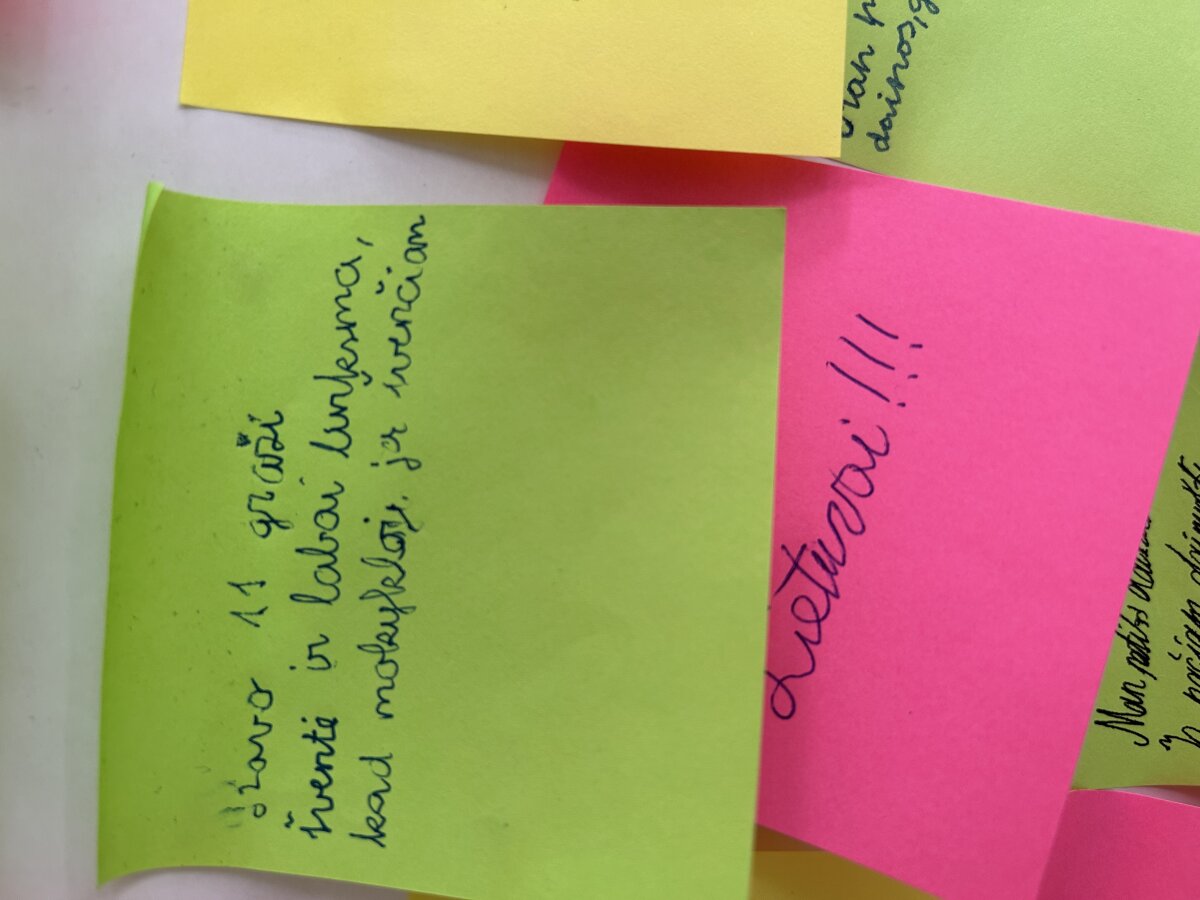 Kovo 11 graži
šventė ir labai linksma,
kad mokykloje ją švenčiam
Lietuvai!!!
dainos,
Man patiko